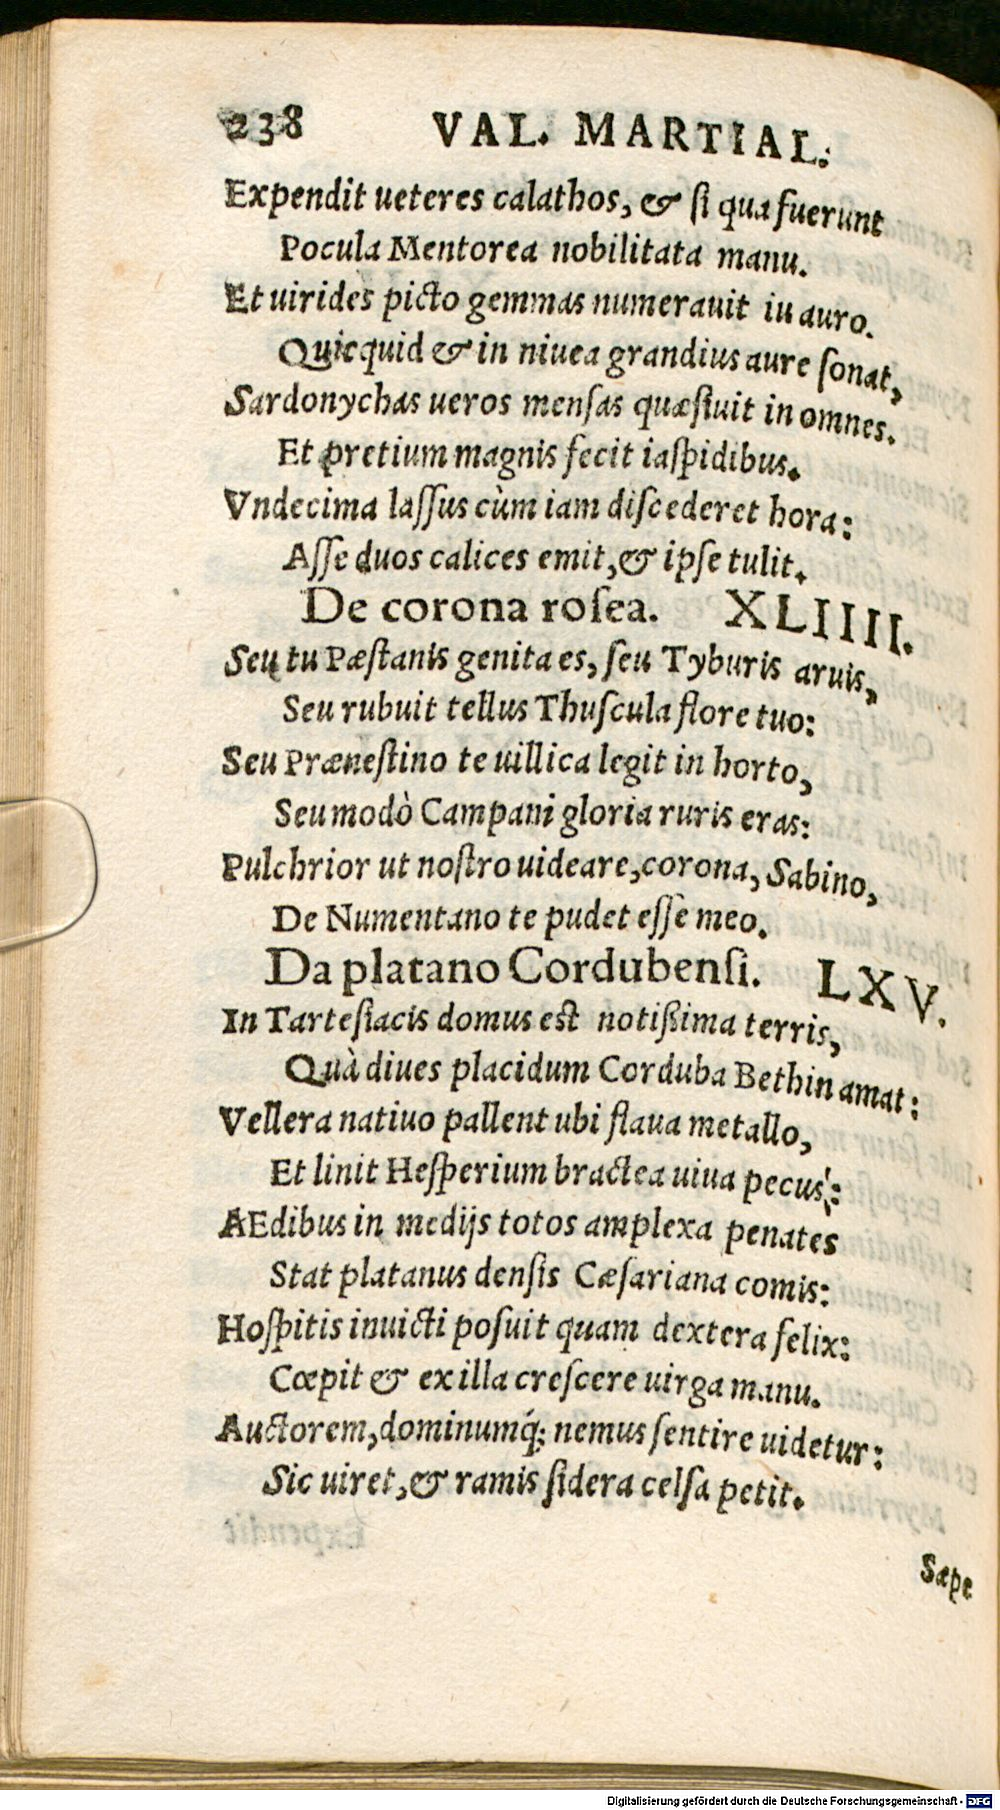 238 VAL. MARTIAL.
Expendit ueteres calathos, & si qua fuerunt
Pocula Mentorea nobilitata manu.
Et uirides picto gemmas numerauit iu auro.
Quicquid & in niuea grandius aure sonat,
Sardonychas ueros mensas quæsiuit in omnes.
Et pretium magnis fecit iaspidibus.
Vndecima lassus cùm iam discederet hora:
Asse duos calices emit, & ipse tulit.
De corona rosea. XLIIII.
Seu tu Pæstanis genita es, seu Tyburis aruis,
Seu rubuit tellus Thuscula flore tuo:
Seu Prænestino te uillica legit in horto,
Seu modò Campani gloria ruris eras:
Pulchrior ut nostro uideare, corona, Sabino,
De Numentano te pudet esse meo.
Da platano Cordubensi. LXV.
In Tartesiacis domus est notißima terris,
Quà diues placidum Corduba Bethin amat:
Vellera natiuo pallent ubi flaua metallo,
Et linit Hesperium bractea uiua pecus:
AEdibus in medijs totos amplexa penates
Stat platanus densis Cæsariana comis:
Hospitis inuicti posuit quam dextera felix:
Cœpit & ex illa crescere uirga manu.
Auctorem, dominumq́; nemus sentire uidetur:
Sic uiret, & ramis sidera celsa petit.
Sæpe
Digitalisierung gefördert durch die Deutsche Forschungsgemeinschaft - DFG